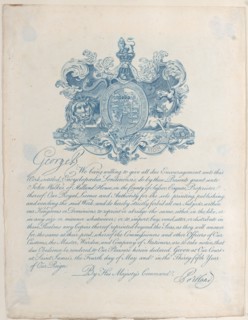 George R.
We being willing to give all due Encouragement unto this
Work entitled Encyclopædia Londinensis, do by these Presents grant unto
John Wilkes, of Milland House, in the County of Sussex, Esquire, Proprietor
thereof Our Royal Licence and Authority for the sole printing, publishing
and vending the said Work; and do hereby strictly forbid all our Subjects within
our Kingdoms or Dominions to reprint or abridge the same, either in the like, or
in any size or manner whatsoever; or to import, buy, vend, utter, or distribute
any Copies thereof reprinted beyond the Seas, as they will answer
the contrary at their peril; whereof the Commissioners and other Officers of Our
Customs, the Master, Wardens, and Company of Stationers, are to take notice, that
due Obedience be rendered to Our Pleasure herein declared. Given at Our Court
at Saint James's, the Fourth day of May and in the Thirty fifth Year
of Our Reign.
By His Majesty's Command
Portland